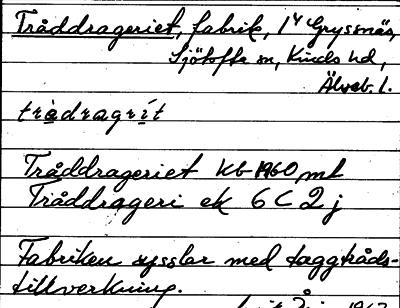 Tråddrageriet, fabrik, 1⁄4 Gryssnäs,
Sjötofta sn, Kinds hd,
Älvsb. l.
trådragrít
Tråddrageriet Kb 1960 mb
Tråddrageri ek 6 C 2 j
Fabriken sysslar med taggtråds-
tillverkning.